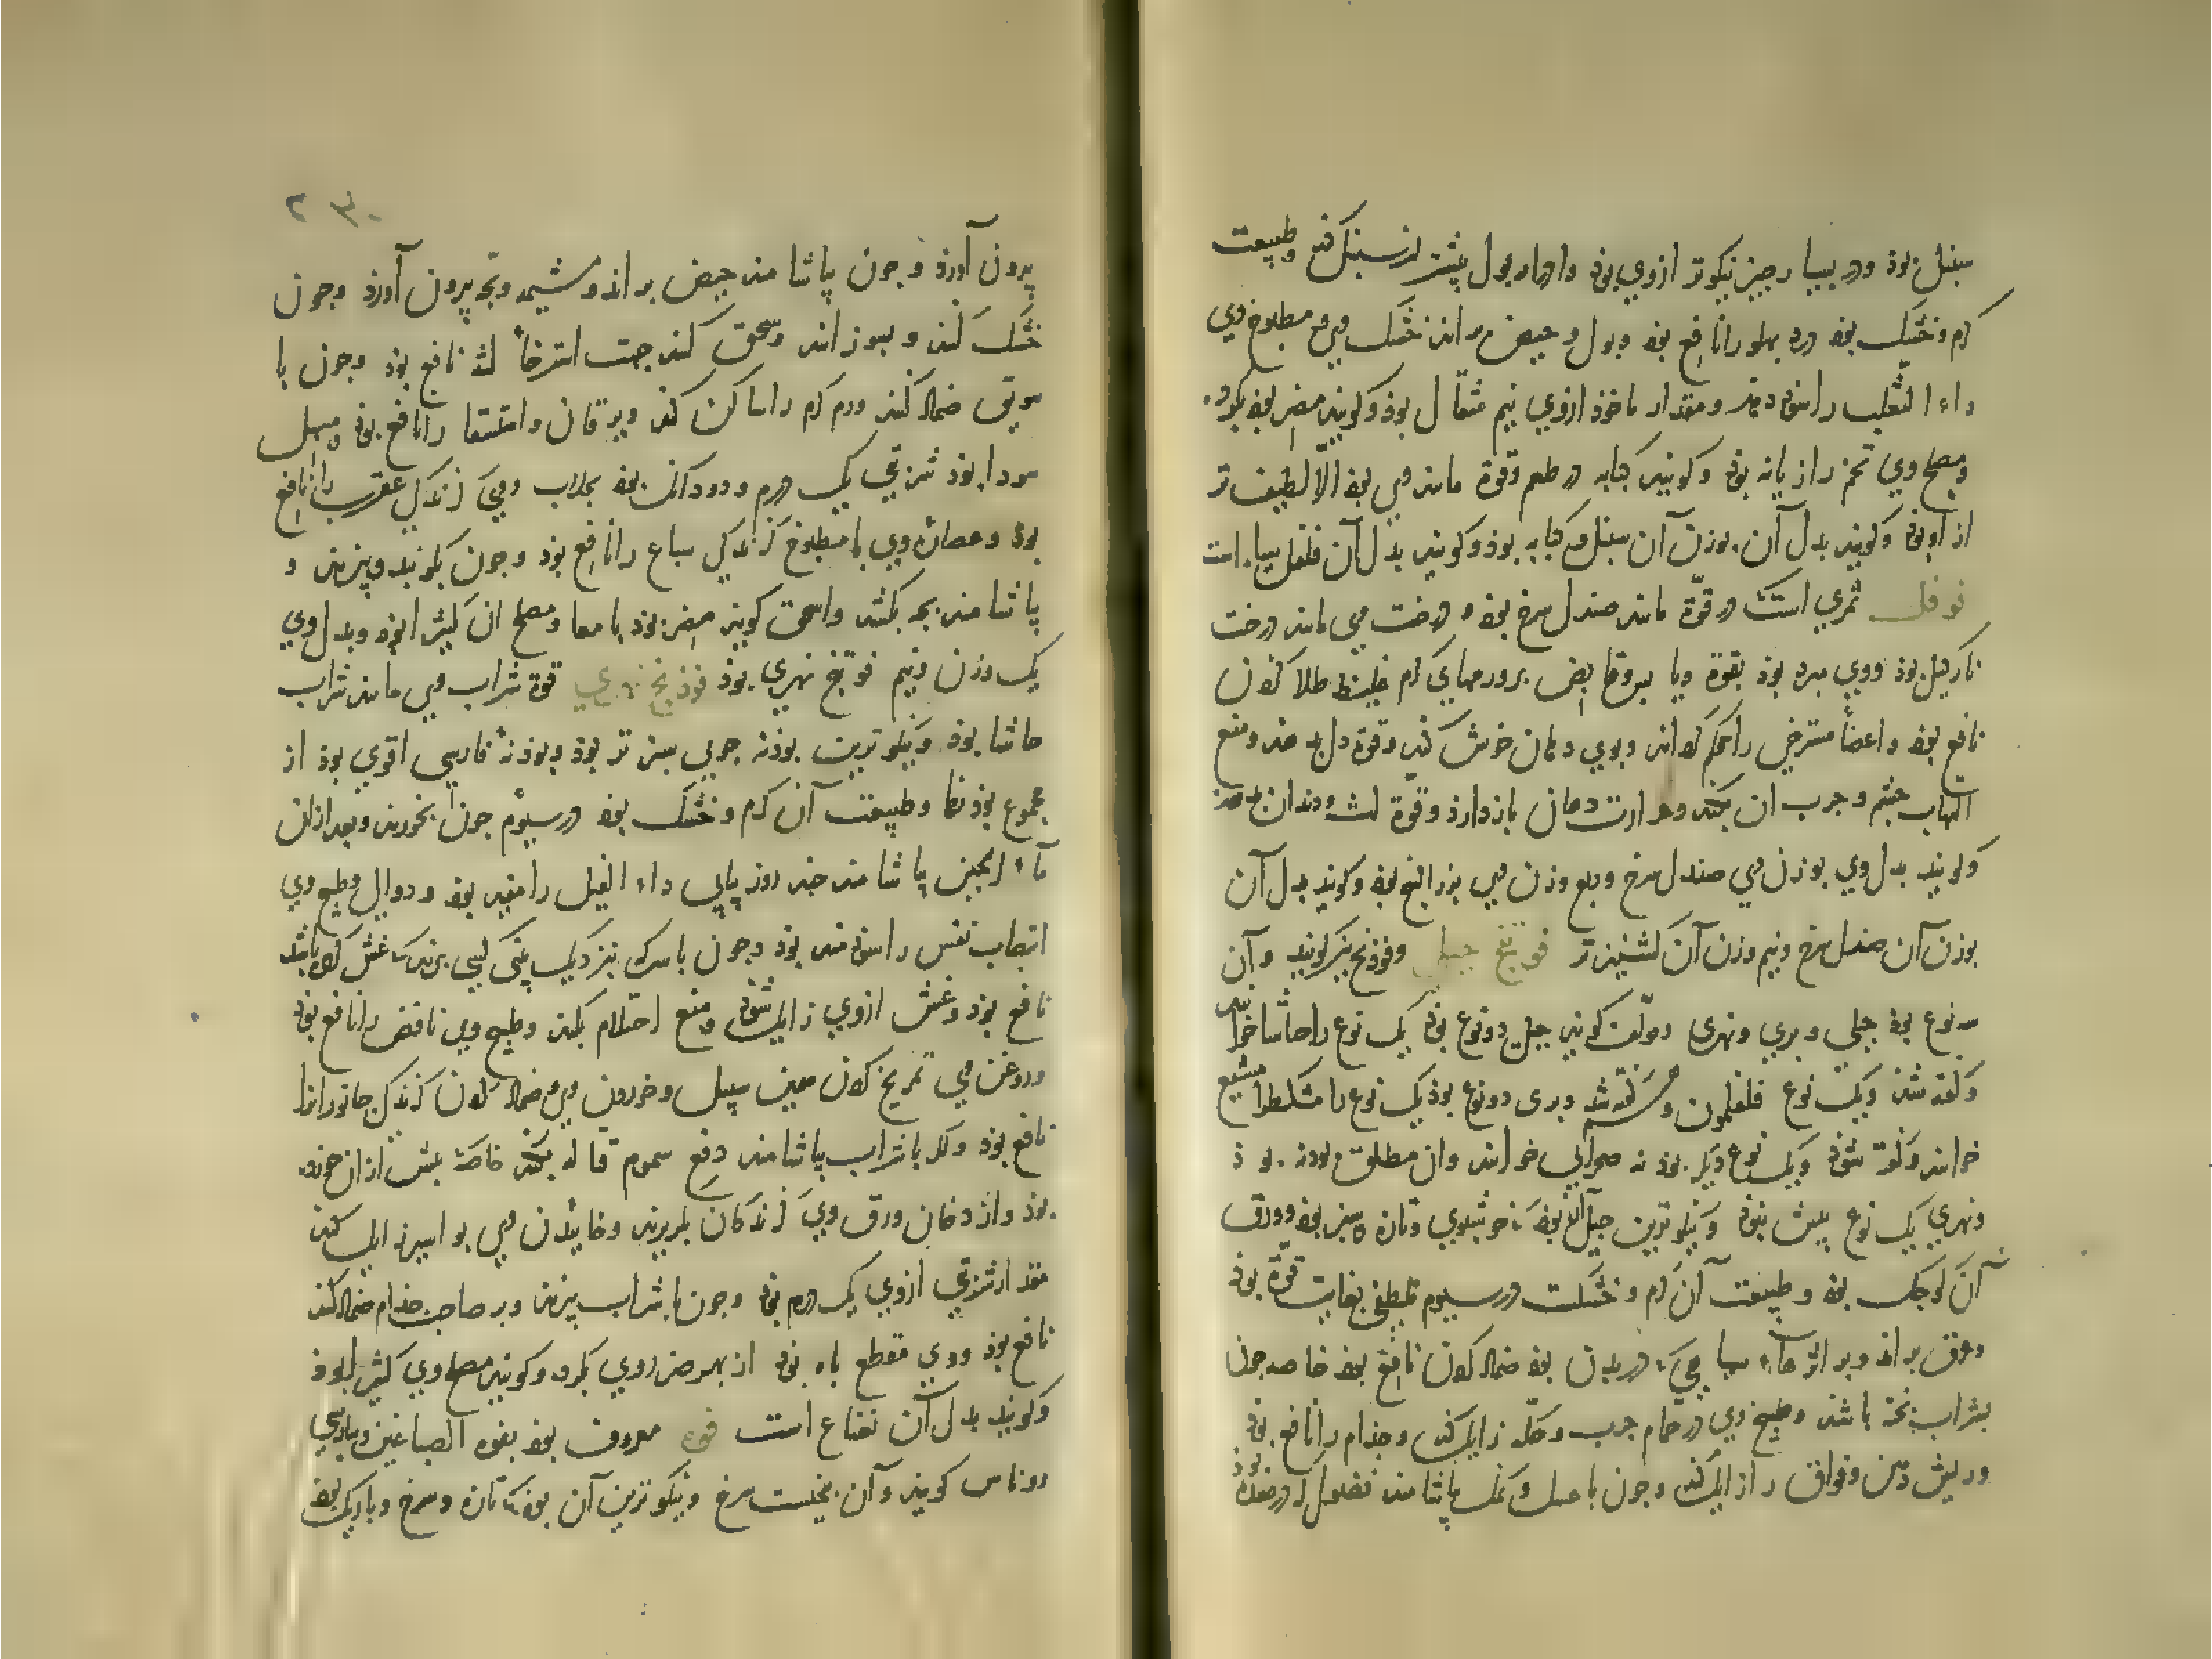 سنبل بوذ ودر بسیار جیز نیکوتر ازوی بوذ وادرار بول بیشتر از سنبل کند وطبیعت
کرم وخشک بوذ درد بهلو را نافع بوذ وبول وحیض براند خشک وی و مطبوخ وی
داء الثعلب را سوذ دهد ومقدار ماخوذ ازوی نیم مثقال بوذ وکویند مضر بوذ بکرده
ومصلح وی تخم رازیانه بوذ وکویند کبابه در طعم وقوة مانند وی بوذ الا لطیف تر
ازو بوذ وکویند بدل آن بوزن آن سنبل و کبابه بوذ وکویند بدل آن فلفل سیاه است
فوفل ثمری است در قوة مانند صندل سرخ بوذ و درخت وی مانند درخت
نارکیل بوذ ووی مبرد بوذ بقوة وبا برو قابض بر ورمهای کرم غلیظ طلا کردن
نافع بوذ واعضاء مسترخی را محکم کرداند وبوی دهان خوش کند وقوة دل بدهد ومنع
التهاب چشم وجرب ان بکند وحرارت دهان بازدارد وقوة لثه ودندان بدهد
کویند بدل وی بوزن وی صندل سرخ وربع وزن وی بزر البنج بوذ وکویند بدل آن
بوزن آن صندل سرخ ونیم وزن آن کشنیز تر فوتنج جبلی وفوذنج نیز کویند وآن
سه نوع بوذ جبلی وبری ونهری ومولف کویند جبلی دو نوع بوذ یک نوع را حاشا خوانند
وکفته شذ ویک نوع فلفلمون و کفته شذ وبری دو نوع بوذ یک نوع را مشکطرامشیع
خوانند وکفته شوذ ویک نوع دیکر بوذنه صحرایی خوانند وان مطلق بوذنه بوذ
ونهری یک نوع بیش نبوذ ونیکوترین جبلی آن بوذ که خوشبوی وتازه وسبز بوذ وورق
آن کوجک بوذ وطبیعت آن کرم وخشکست در سیوم ملطفی بغایت قوة بوذ
وعرق براند وبر اثرهاء سیاهی که در بدن بوذ ضماد کردن نافع بوذ خاصه جون
بشراب بخته باشد وطبیخ وی در حمام جرب وحکه زایل کند وجذام را نافع بوذ
وریش دهن وفواق را زایل کند وجون با عسل ونمک بیاشامند فضول که در معده بوذ
۲۳۰
بیرون آورد وجون بیاشامند حیض براند ومشیمه وبچه بیرون آورد وجون
خشک کنند وبسوزانند وسحق کنند جهت استرخاء لثه نافع بوذ وجون با
سویق ضماد کنند ورم کرم را ساکن کند ویرقان واستسقا را نافع بوذ ومسهل
سودا بوذ شربتی یک درم ودو دانک بوذ بجلاب وقی کزندکی عقرب را نافع
بوذ وعصاره وی با مطبوخ کزندکی سباع را نافع بوذ وجون بکوبند وببزند و
بیاشامند بچه بکشد واسحق کویند مضر بوذ بامعا ومصلح ان کثیرا بوذ وبدل وی
یک وزن ونیم فوتنج نهری بوذ فوذنج نهری قوة شراب وی مانند شراب
حاشا بوذ ونیکوترین بوذنه جویی سبز تر بوذ وبوذنه فارسی اقوی بوذ از
مجموع بوذنها وطبیعت آن کرم وخشک بوذ در سیوم جون بخورند وبعد ازان
ماء الجبن بیاشامند جند روز بیابی داء الفیل را مفید بوذ ودوالی وطبیخ وی
انتصاب نفس را سوذمند بوذ وجون با سرکه نزدیک بینی کسی برند که غش کرده باشد
نافع بوذ وغش ازوی زایل شوذ ومنع احتلام بکند وطبیخ وی نافض را نافع بوذ
وروغن وی تمریخ کردن همین سبیل وخوردن وی وضماد کردن کزندکی جانوران را
نافع بوذ وکر با شراب بیاشامند دفع سموم قاتله بکند خاصة بیش ازان خورده
بوذ واز دخان ورق وی کزندکان بکریزند وخائیدن وی بواسیر زایل کند
مقدار شربتی ازوی یک درم بوذ وجون با شراب ببزند وبر صاحب جذام ضماد کنند
نافع بوذ ووی مقطع باه بوذ از بهر ضرروی بکرده وکویند مصلح وی کثیرا بوذ
وکویند بدل آن نعناع است فوه معروف بوذ بفوه الصباغین وببارسی
روناس کویند وآن بیخیست سرخ ونیکوترین آن بوذ که تازه وسرخ وباریک بوذ